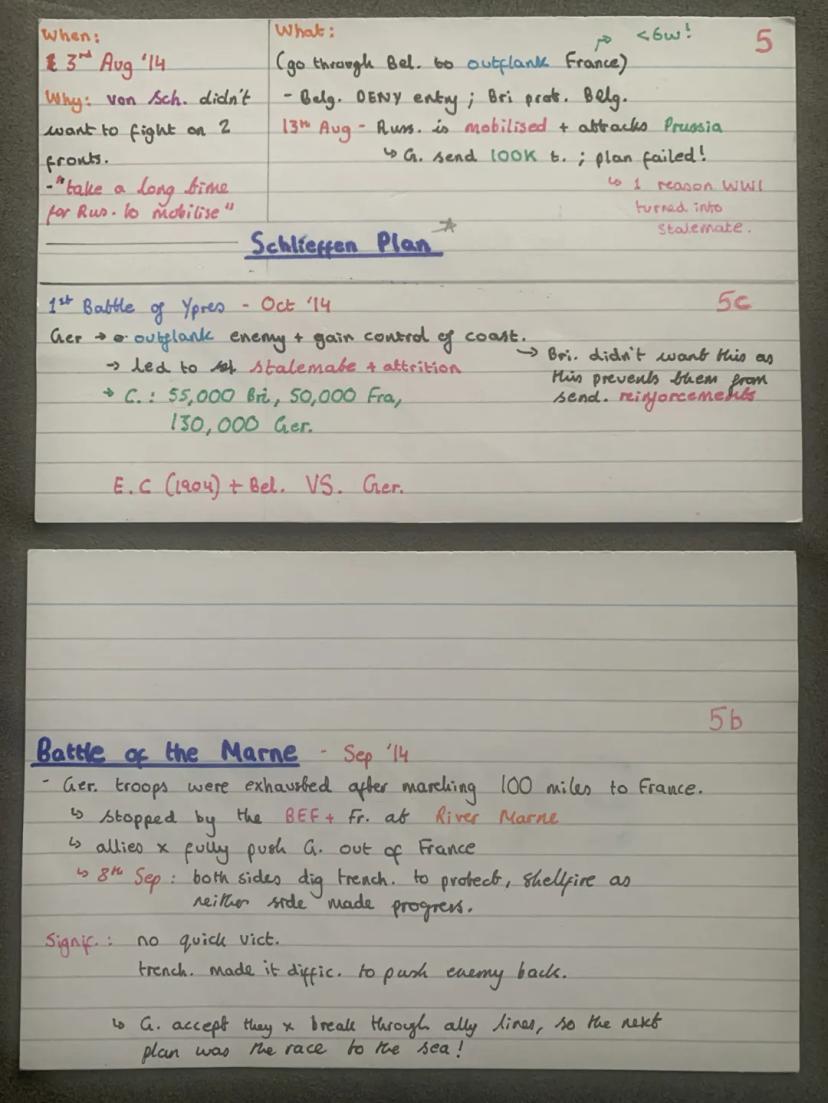 When:
3rd Aug '14
Why: von Sch. didn't
want to fight on 2
fronts.
- "take a long time
for Rus. to mobilise"
What:
<6w!
5
(go through Bel. to outflank France)
- Belg. DENY entry ; Bri prot. Belg.
13th Aug - Russ. is mobilised + attacks Prussia
↳ G. send 100K t. ; plan failed!
↳ 1 reason WW1
turned into
stalemate.
Schlieffen Plan
1st Battle of Ypres - Oct '14
5c
Ger → outflank enemy + gain control of coast.
→ Bri. didn't want this as
this prevents them from
send. reinforcements
→ led to stalemate + attrition
→ C. : 55,000 Bri, 50,000 Fra,
130,000 Ger.
E.C (1904) + Bel. VS. Ger.
5b
Battle of the Marne - Sep '14
- Ger. troops were exhausted after marching 100 miles to France.
↳ stopped by the BEF + Fr. at River Marne
↳ allies x fully push G. out of France
↳ 8th Sep : both sides dig trench. to protect, shellfire as
neither side made progress.
Signif. : no quick vict.
trench. made it diffic. to push enemy back.
↳ G. accept they x break through ally lines, so the next
plan was the race to the sea!